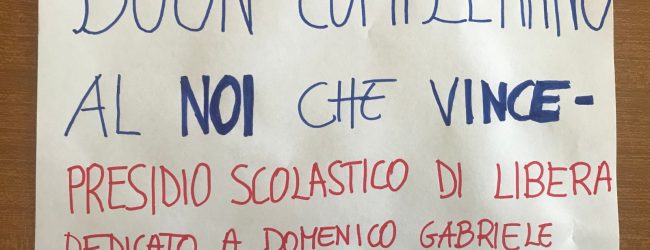 BUON COMPLEANNO
AL NOI CHE VINCE-
PRESIDIO SCOLASTICO DI LIBERA
DEDICATO A DOMENICO GABRIELE